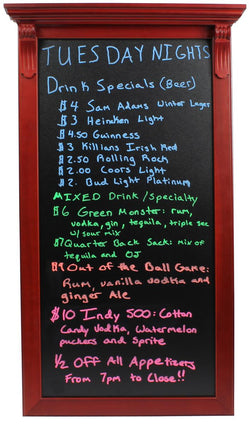 TUESDAY NIGHTS
Drink Specials (Beer)
$4 Sam Adams Winter Lager
$3 Heinken Light
$4.50 Guinness
$3 Killians Irish Red
$2.50 Rolling Rock
$2.00 Coors Light
$2. Bud Light Platinum
MIXED Drink/Specialty
$6 Green Monster: rum,
vodka, gin, tequila, triple sec
w/sour mix
$7 Quarter Back Sack: mix of
tequila and OJ
$9 Out of the Ball Game:
Rum, vanilla vodka and
ginger Ale
$10 Indy 500: Cotton
Candy Vodka, Watermelon
puckers and Sprite
1/2 Off All Appetizers
From 7pm to Close!!